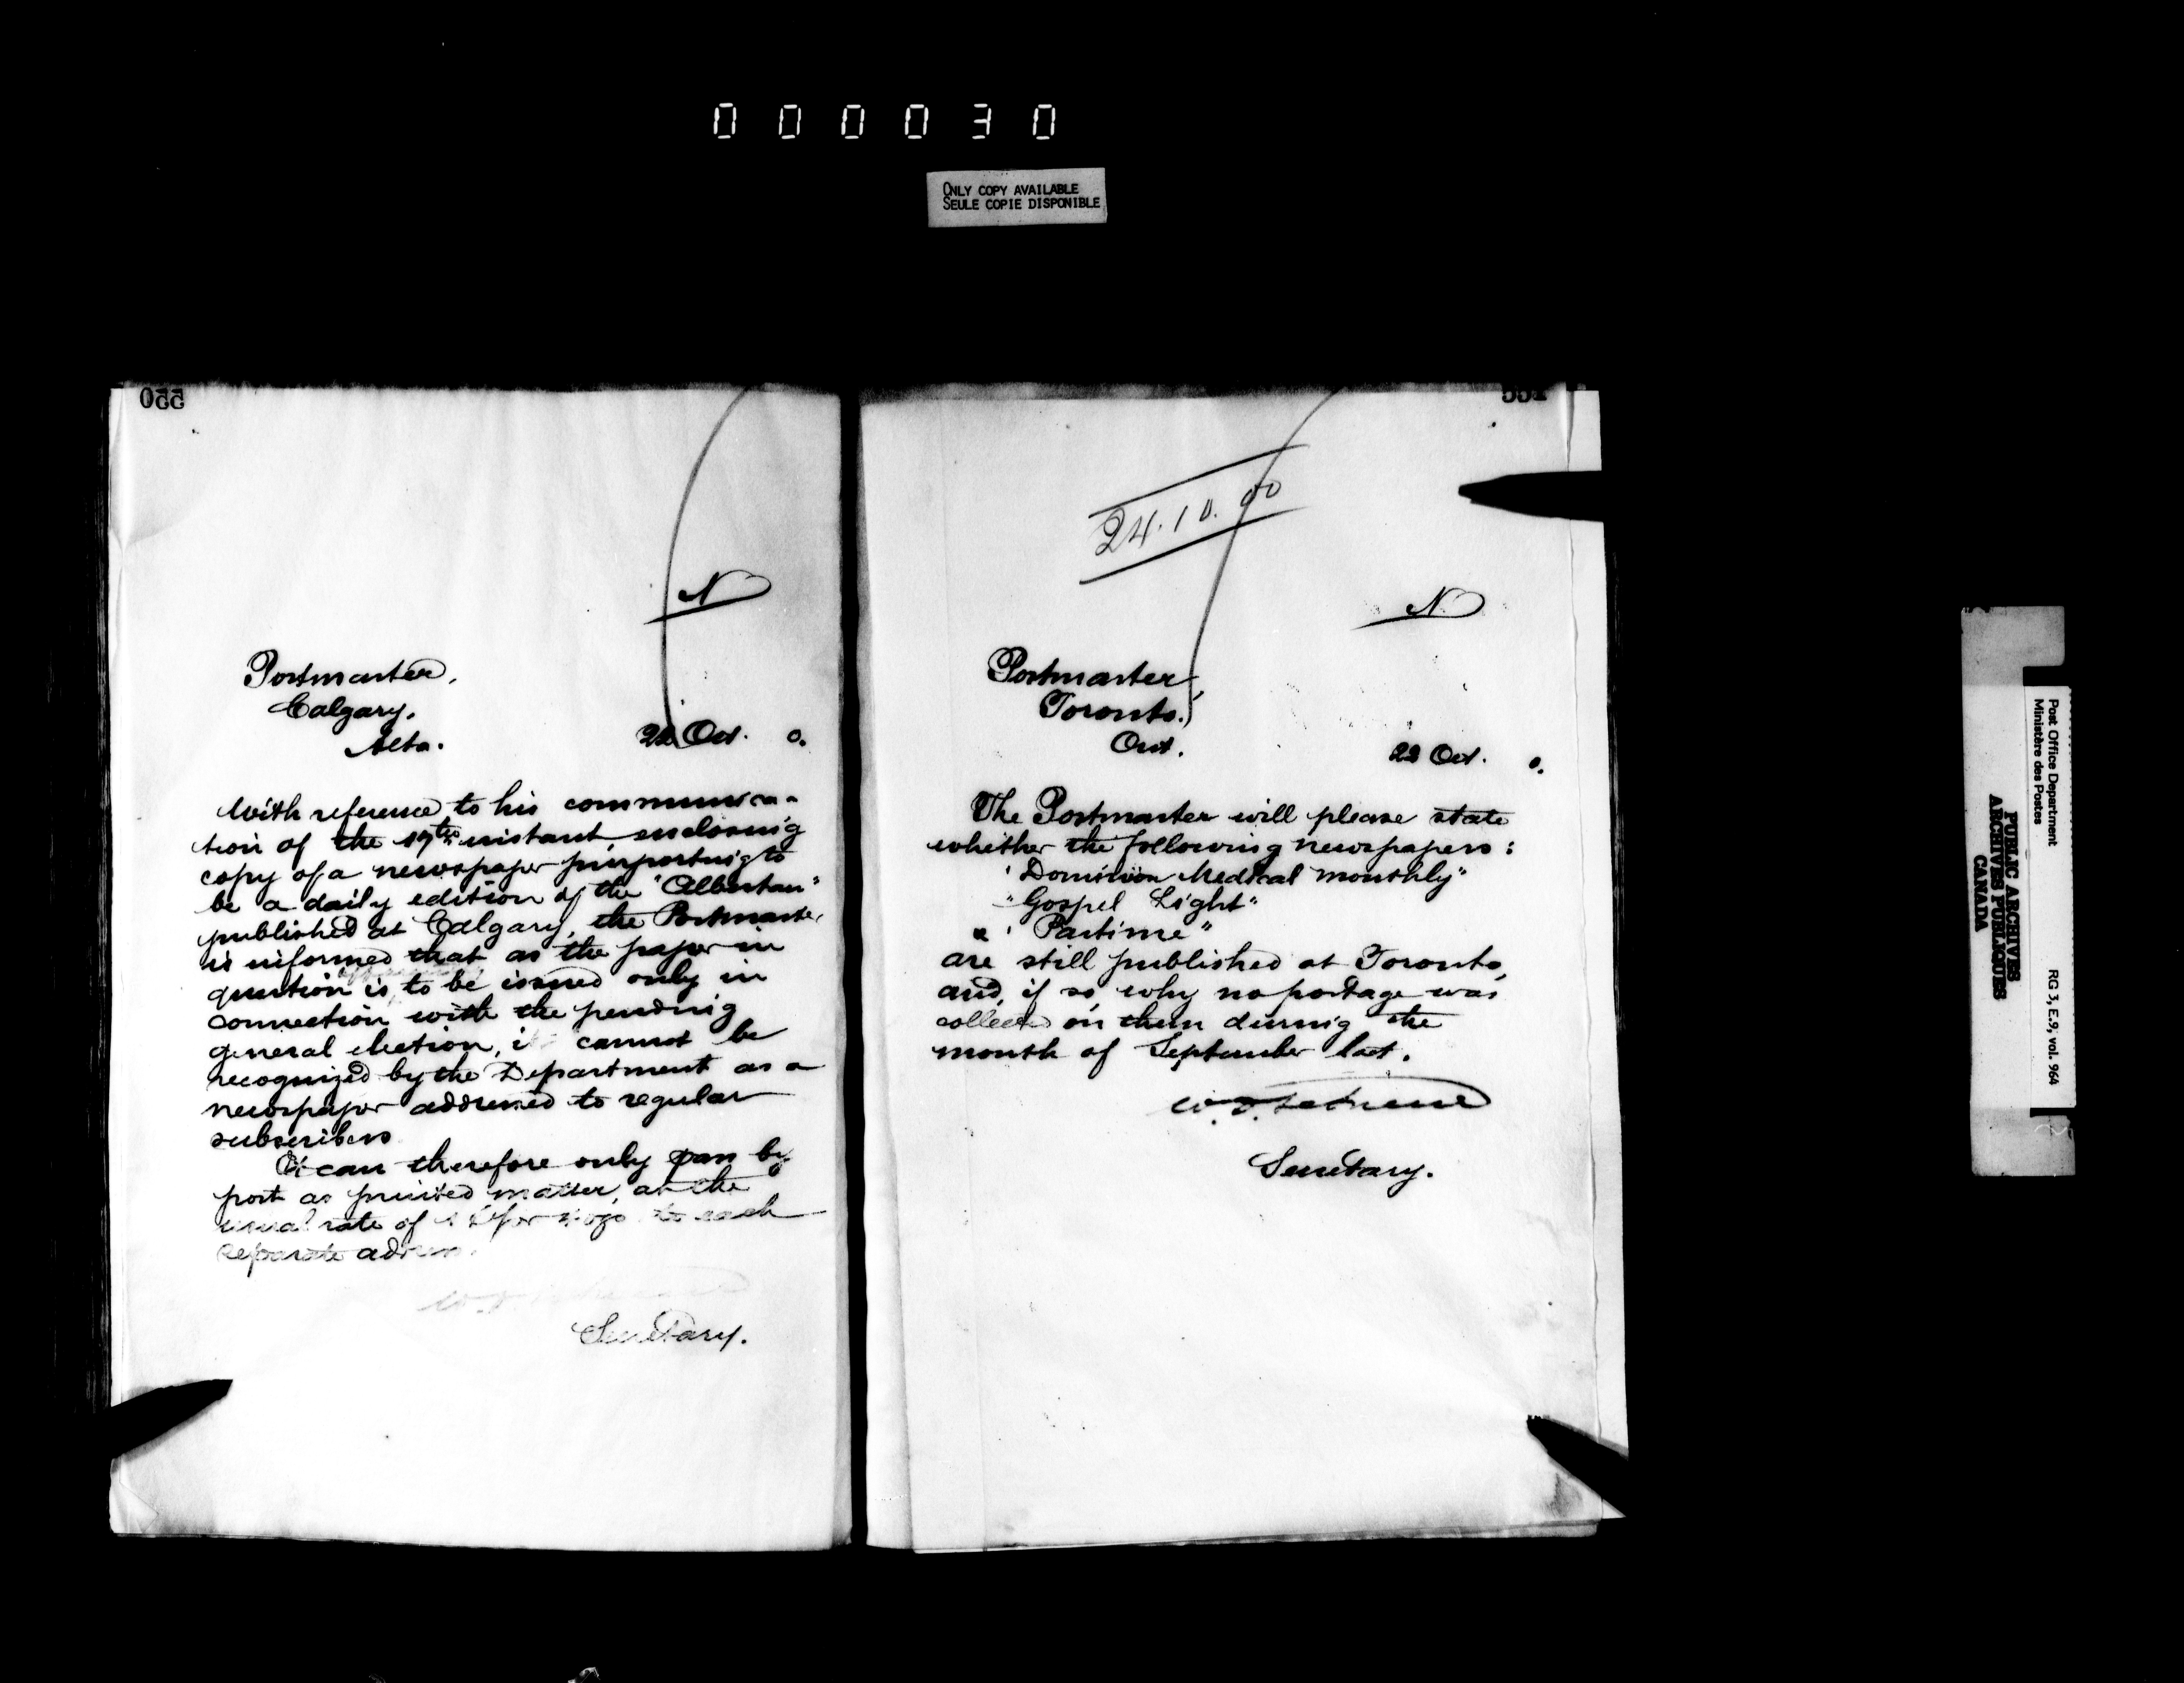 000030
ONLY COPY AVAILABLE
SEULE COPIE DISPONIBLE
550
N
Postmaster,
Calgary,
Alta.
22 Oct. 0.
With reference to his communica-
tion of the 19th instant, enclosing
copy of a newspaper purporting to
be a daily edition of the "Albertan"
published at Calgary, the Postmaster
is informed that as the paper in
question is to be issued only in
connection with the pending
general election, it cannot be
recognized by the Department as a
newspaper addressed to regular
subscribers
It can therefore only pass by
post as printed matter, at the
usual rate of 1 ¢ per 4 ozs. to each
separate address.
Secretary.
551
24.10.00
N
Postmaster,
Toronto.
Ont.
22 Oct. 0.
The Postmaster will please state
whether the following newspapers:
"Dominion Medical Monthly"
"Gospel Light"
& "Pastime"
are still published at Toronto,
and, if so, why no postage was
collected on them during the
month of September last.
Secretary.
Post Office Department
Ministère des Postes
RG 3, E.9, vol. 964
PUBLIC ARCHIVES
ARCHIVES PUBLIQUES
CANADA